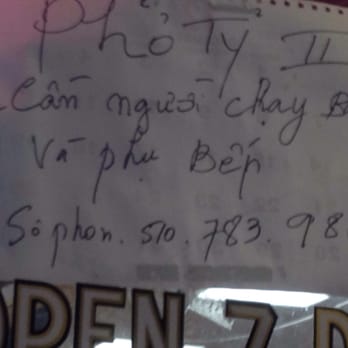 Phở Tỷ II
Cần người chạy B
Và phụ Bếp
Số phon. 510. 783. 98
OPEN 7 D